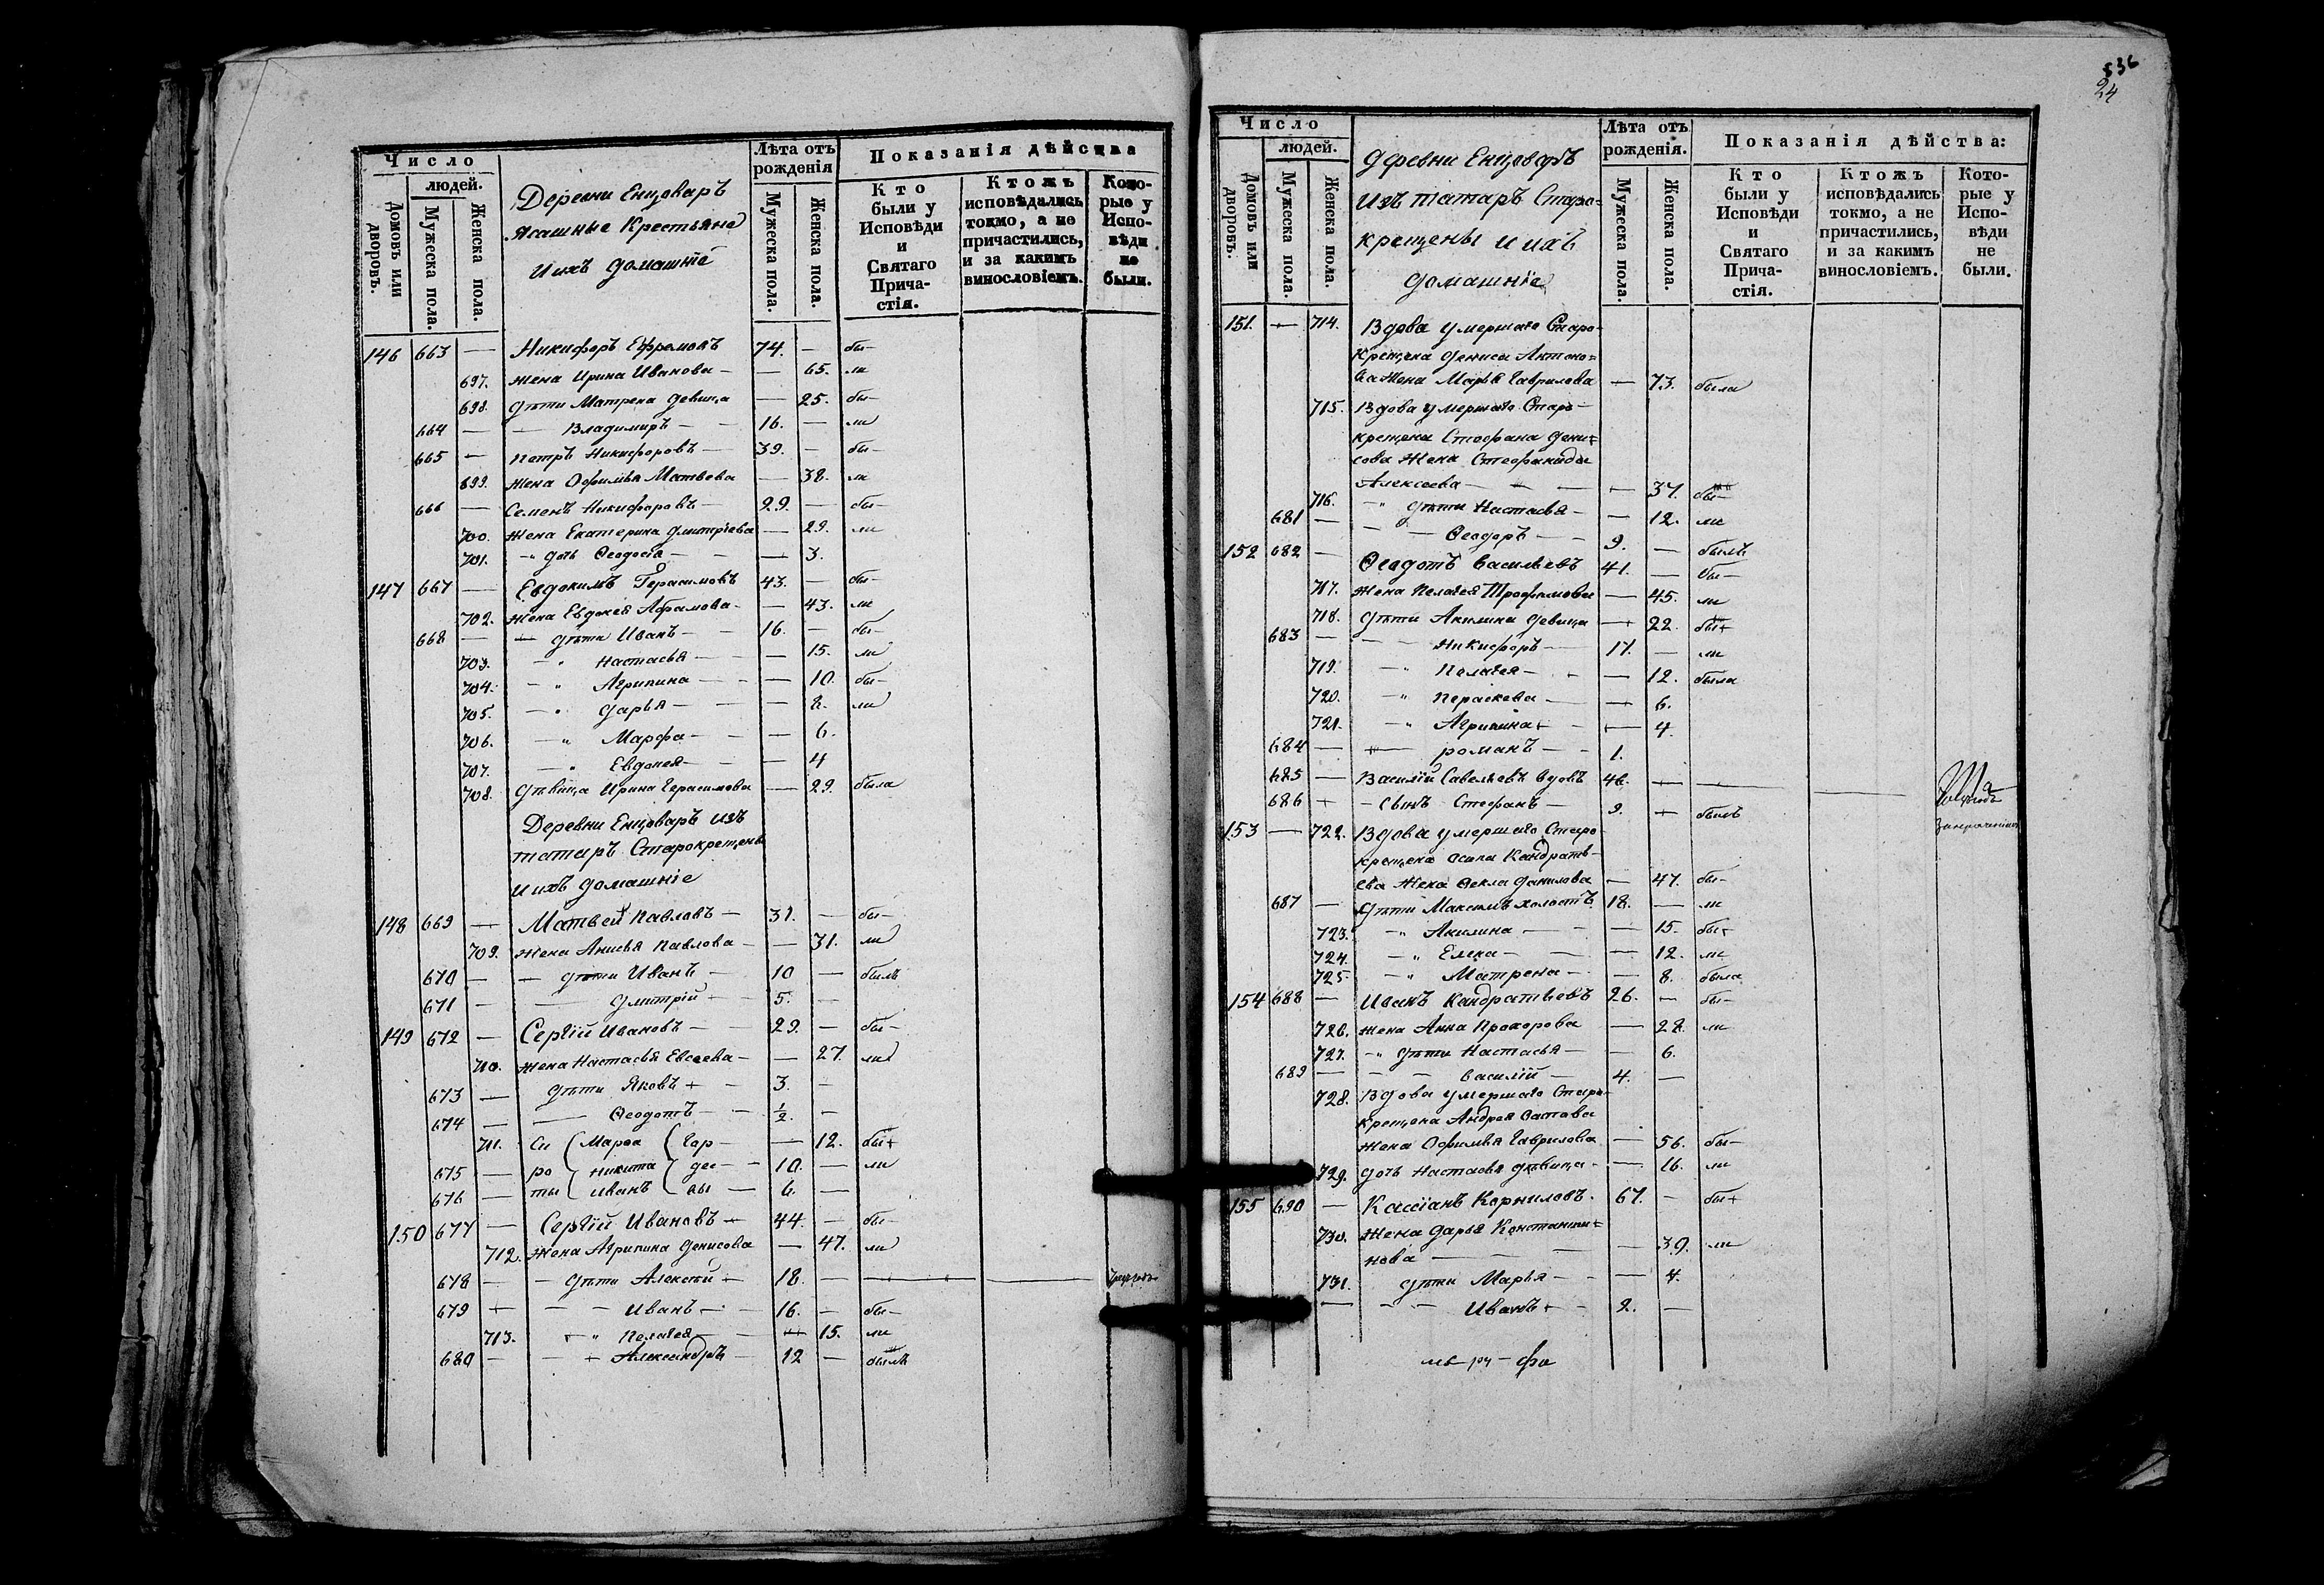 Число
людей.
Домовъ или дворовъ.
Мужеска пола.
Женска пола.
Деревни Енцоваръ
Ясашные Крестьяне
и ихъ домашніе
Лѣта отъ рожденія
Мужеска пола.
Женска пола.
Показанія дѣйства
Кто были у Исповѣди и Святаго Прича-стія.
Ктожъ исповѣдались токмо, а не причастились, и за какимъ винословіемъ.
Кото-рые у Испо-вѣди не были.
146 663 — Никифоръ Ефремовъ 74. — бы—
697. жена Ирина Иванова — — 65. ли
698. дѣти Матрена девица — 25. бы—
664 — — Владимиръ — 16. — ли
665 — Петръ Никифоровъ — 39. — бы—
699. жена Офимья Матвеева — 38. ли
666 — Семенъ Никифоровъ — 29. — бы—
700. жена Екатерина Дмитріева — 29. ли
701. —„ дочь Ѳеодосія — — 3.
147 667 — Евдокимъ Герасимовъ 43. — бы—
702. жена Евдокея Абрамова — — 43. ли
668 — — дѣти Иванъ — 16. — бы—
703. —„ Настасья — — 15. ли
704. —„ Агрипина — — 10. бы—
705. —„ Дарья — — 8. ли
706. —„ Марфа — — 6.
707. —„ Евдокея — — 4
708. дѣвица Ирина Герасимова — 29. была
Деревни Енцоваръ изъ
татаръ Старокрещены
и ихъ домашніе
148 669 — Матвей Павловъ — 31. — бы—
709. жена Анисья Павлова — — 31. ли
670 — — дѣти Иванъ — 10 — былъ
671 — — Дмитрій — 5. —
149 672 — Сергій Ивановъ — 29. — бы—
710. жена Настасья Евсеева — — 27. ли
673 — дѣти Яковъ — 3. —
674 — — Ѳеодотъ — ½. —
711. Си ( Марѳа ( Гор — — 12. бы—
675 — ро ( Никита ( дее — 10. — ли
676 — ты ( Иванъ ( вы — 6. —
150 677 — Сергій Ивановъ — 44. — бы—
712. жена Агрипина Денисова — 47. ли
678 — — дѣти Алексѣй — 18. —
679 — — Иванъ — 16. — бы—
713. —„ Пелагея — — 15. ли
680 — — Александръ — 12 — былъ
536
24
Число
людей.
Домовъ или дворовъ.
Мужеска пола.
Женска пола.
Деревни Енцоваръ
Изъ татаръ Старо=
крещены и ихъ
домашніе
Лѣта отъ рожденія.
Мужеска пола.
Женска пола.
Показанія дѣйства:
Кто были у Исповѣди и Святаго Прича-стія.
Ктожъ исповѣдались токмо, а не причастились, и за какимъ винословіемъ.
Кото-рые у Испо-вѣди не были.
151. — 714. Вдова умершаго Старо-
крещена Дениса Антоно=
ва жена Марья Гаврилова — 73. была
715. Вдова умершаго Старо-
крещена Стефана Дени=
сова жена Стефанида
Алексеева — — 37. бы—
716. —„ дѣти Настасья — — 12. ли
681 — — Ѳеодоръ — 9. — былъ
152 682 — Ѳеодотъ Васильевъ 41. — бы—
717. жена Пелагея Трофимова — 45. ли
718. дѣти Акилина девица — 22. бы—
683 — — Никифоръ — 17. — ли
719. —„ Пелагея — — 12. была
720. —„ Пераскева — — 6.
721. —„ Агрипина — — 4.
684 — — романъ — 1.
685 — Василій Савельевъ вдовъ 46. —
686 — — сынъ Стефанъ — 9. — былъ
153 — 722. Вдова умершаго Старо-
крещена Осипа Кандратѣ-
ева жена Ѳекла Данилова — 47. бы—
687 — дѣти Максимъ холостъ 18. — ли
723. —„ Акилина — — 15. бы—
724. —„ Елена — — 12. ли
725. —„ Матрена — — 8. была
154 688 — Иванъ Кандратьевъ 26. — бы—
726. жена Анна Прохорова — 28. ли
727. —„ дѣти Настасья — — 6.
689 — — Василій — 4. —
728. Вдова умершаго Старо-
крещена Андрея
жена Офимья Гаврилова — 56. бы—
729. дочь Настасья дѣвица — — 16. ли
155 690 — Кассіанъ Корниловъ. 67. — бы—
730. жена Дарья Константи=
нова — — 39. ли
731. дѣти Марья — — 4.
— — Иванъ — 2. —